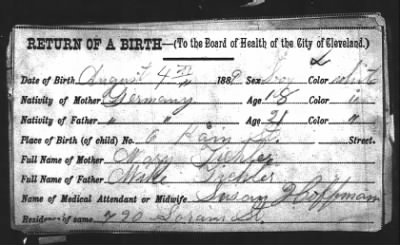 RETURN OF A BIRTH—(To the Board of Health of the City of Cleveland.)
Date of Birth August 4th 1889 Sex Boy Color white
Nativity of Mother Germany Age 18 Color "
Nativity of Father " " Age 21 Color "
Place of Birth (of child) No. 6 St. Street.
Full Name of Mother Mary
Full Name of Father Mike
Name of Medical Attendant or Midwife Susan Hoffman
Residence of same 790 Lorain St.